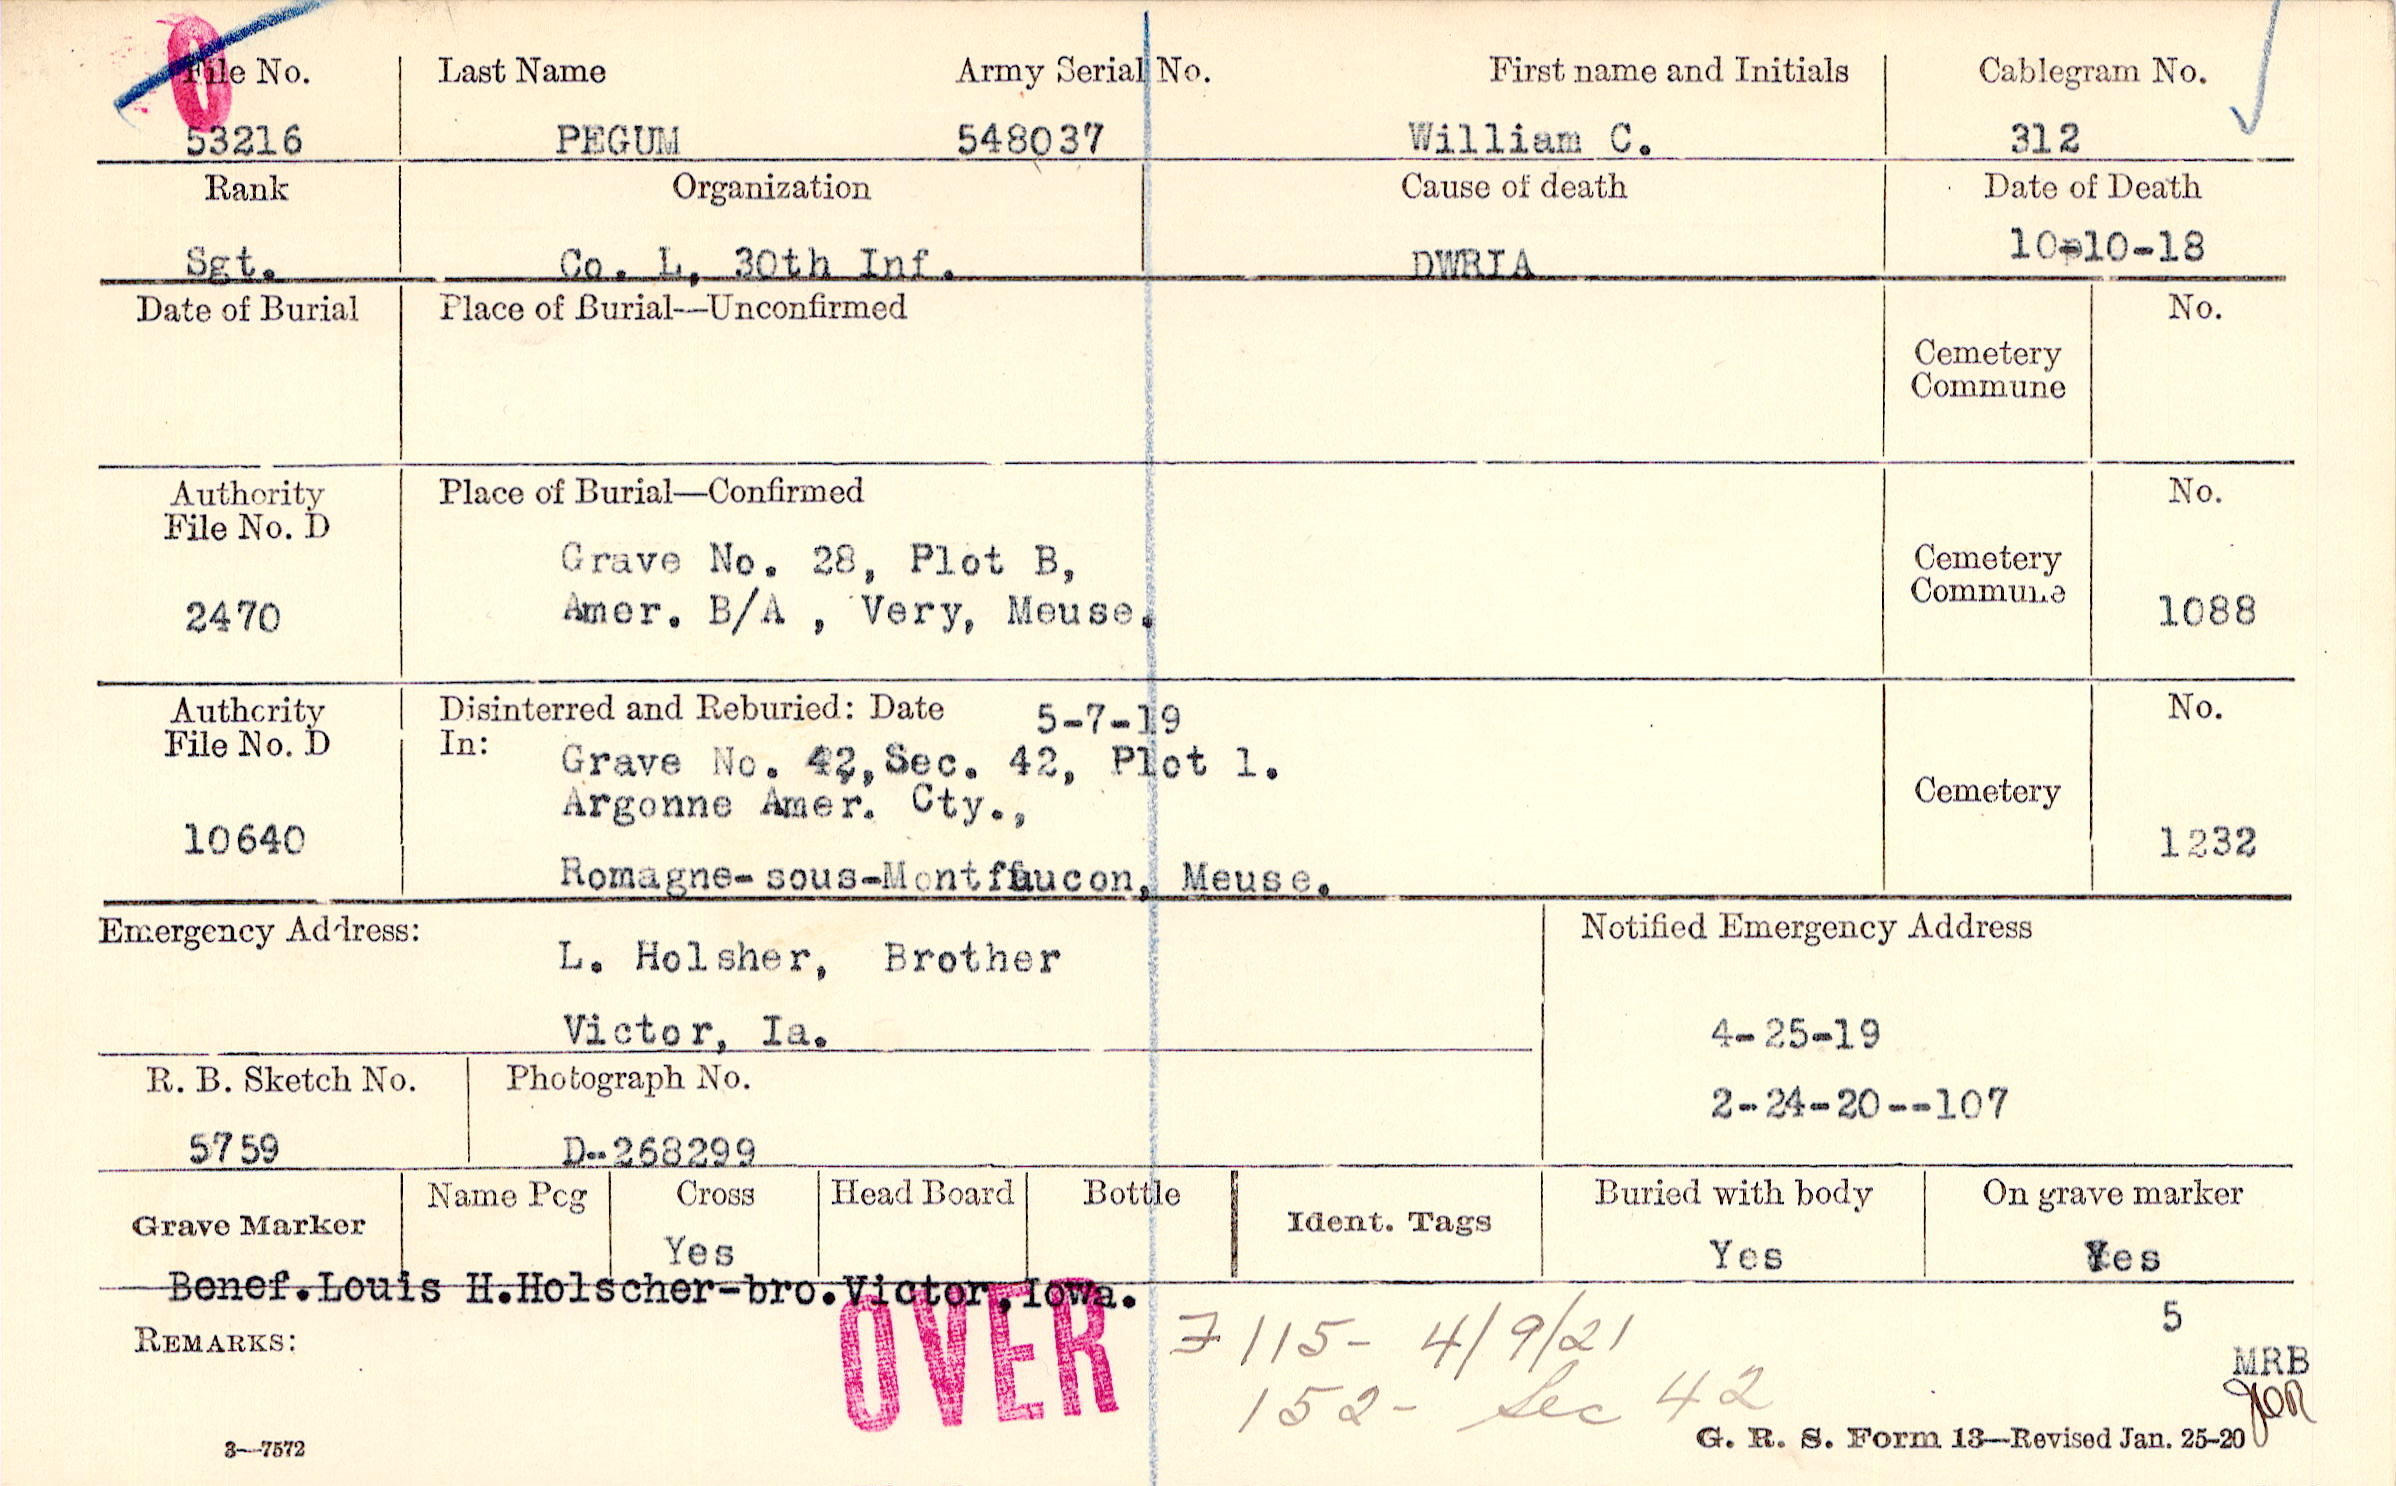 0
File No. Last Name Army Serial No. First name and Initials Cablegram No.
53216 PEGUM 548037 William C. 312
Rank Organization Cause of death Date of Death
Sgt. Co. L, 30th Inf. DWRIA 10-10-18
Date of Burial Place of Burial—Unconfirmed No.
Cemetery
Commune
Authority Place of Burial—Confirmed No.
File No. D
Grave No. 28, Plot B, Cemetery
Commune
2470 Amer. B/A , Very, Meuse. 1088
Authority Disinterred and Reburied: Date 5-7-19 No.
File No. D In:
Grave No. 42, Sec. 42, Plot 1.
Argonne Amer. Cty., Cemetery
10640 1232
Romagne-sous-Montfaucon, Meuse.
Emergency Address: Notified Emergency Address
L. Holsher, Brother
Victor, Ia. 4-25-19
R. B. Sketch No. Photograph No.
2-24-20--107
5759 D--268299
Grave Marker Name Peg Cross Head Board Bottle Ident. Tags Buried with body On grave marker
Yes Yes Yes
Benef.Louis H.Holscher-bro.Victor,Iowa.
5
REMARKS: OVER 7115- 4/9/21
MRB
152- Sec 42
3—7572 G. R. S. Form 13—Revised Jan. 25-20